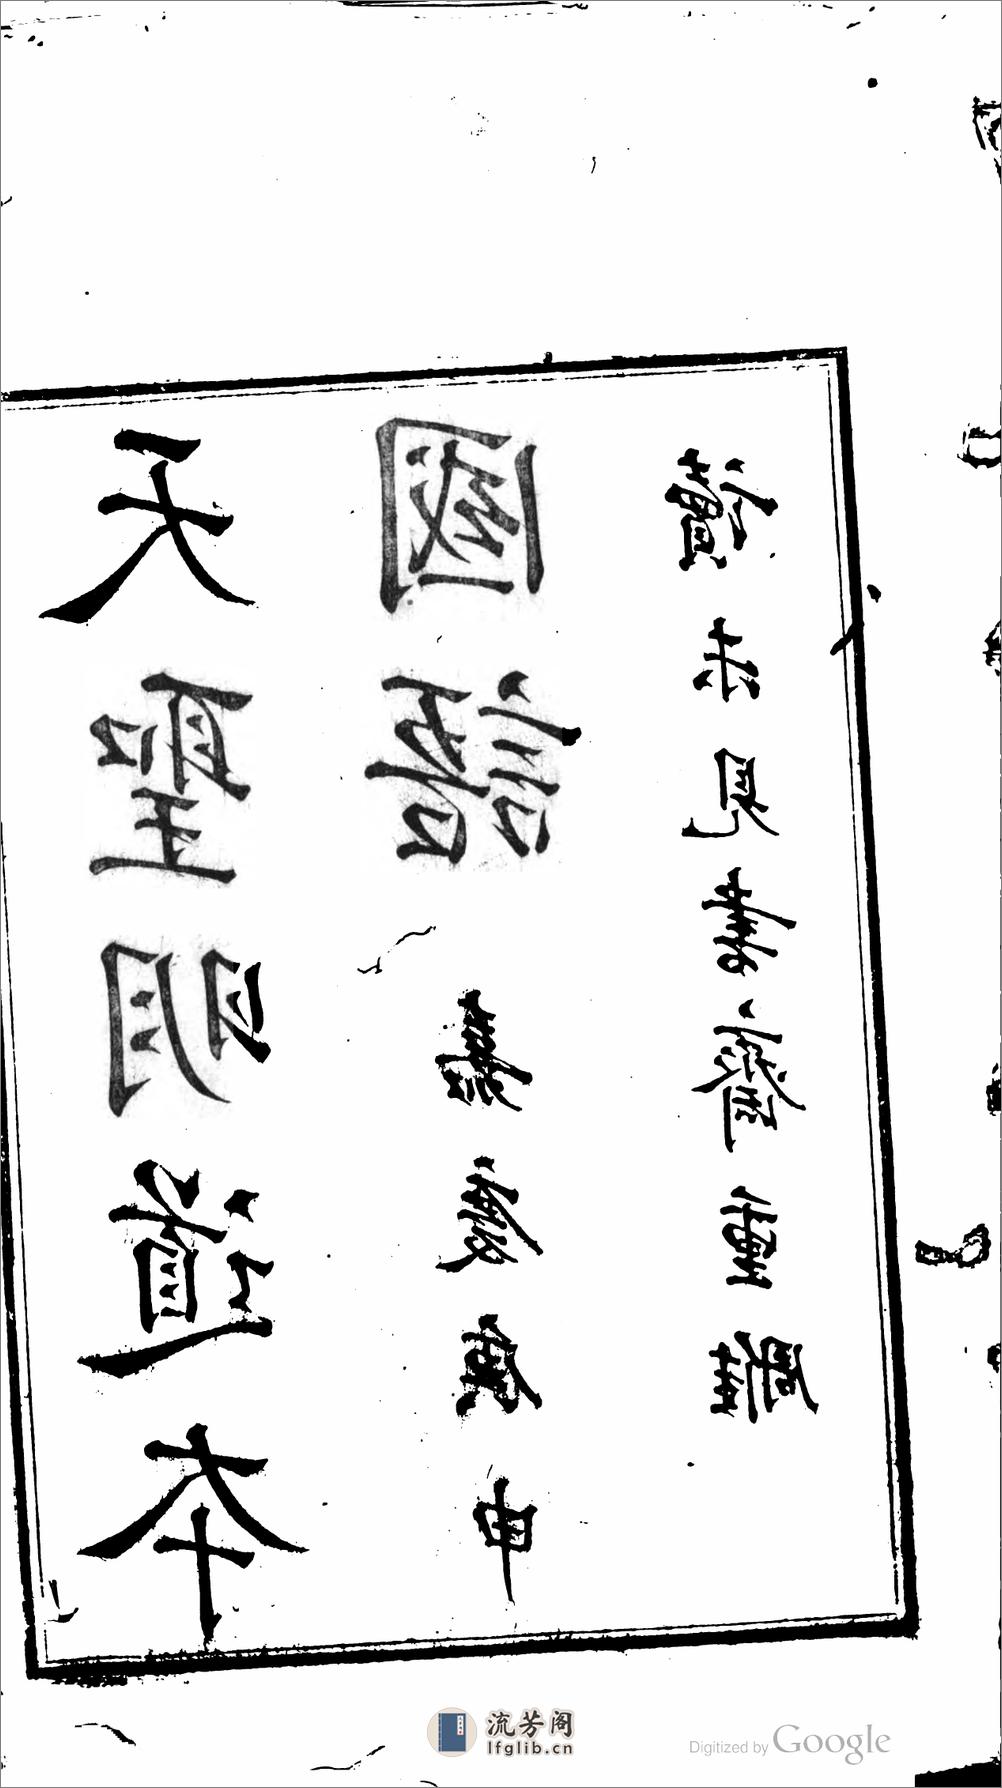 天聖明道本
國語
嘉慶庚申
讀未見書齋重雕
流芳阁
lfglib.cn
Digitized by Google